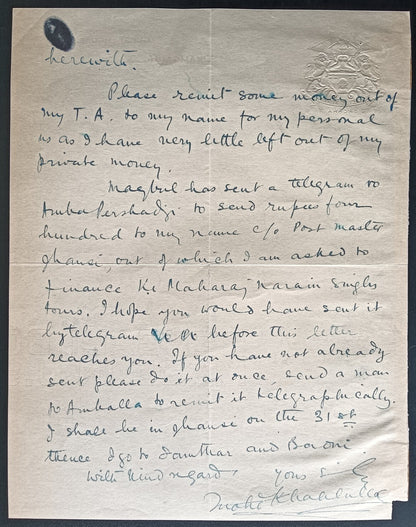 herewith.
Please remit some money out of
my T. A. to my name for my personal
us as I have very little left out of my
private money.
Maqbul has sent a telegram to
Amba Pershadji to send rupees four
hundred to my name c/o Post master
Jhansi, out of which I am asked to
finance Kr Maharaj Narain Singhs
tours. I hope you would have sent it
by telegram before this letter
reaches you. If you have not already
sent please do it at once, send a man
to Amballa to remit it telegraphically.
I shall be in Jhansi on the 31st
thence I go to and Baoni
With kind regard, yours